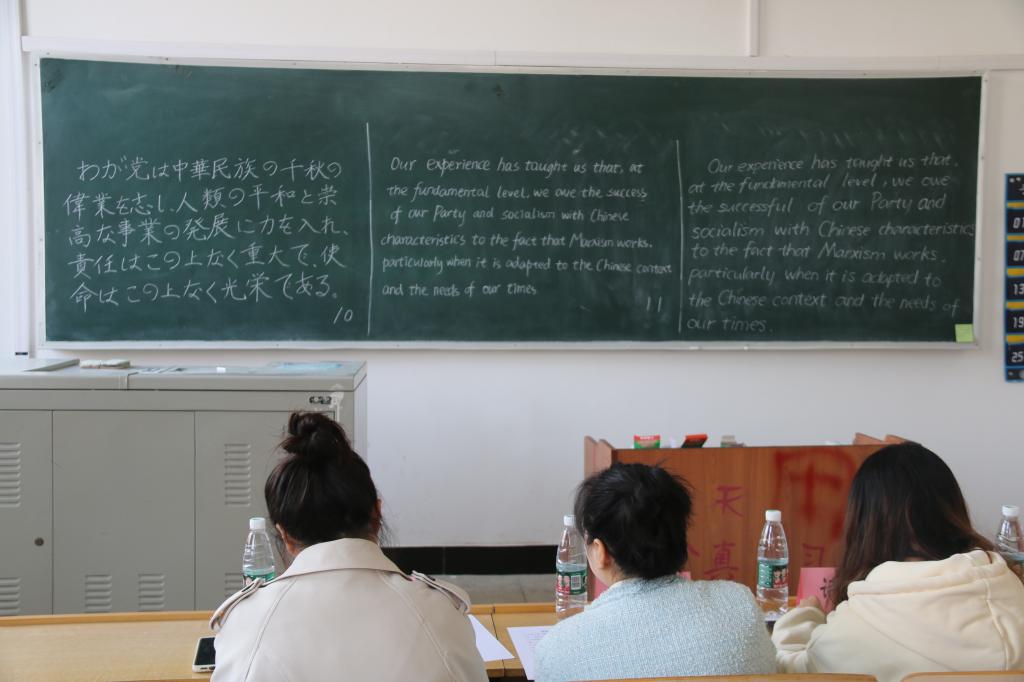 わが党は中華民族の千秋の
偉業を志し、人類の平和と崇
高な事業の発展に力を入れ、
責任はこの上なく重大で、使
命はこの上なく光栄である。
10
Our experience has taught us that, at
the fundamental level, we owe the success
of our Party and socialism with Chinese
characteristics to the fact that Marxism works,
particularly when it is adapted to the Chinese context
and the needs of our times
11
Our experience has taught us that,
at the fundamental level, we owe
the successful of our Party and
socialism with Chinese characteristics
to the fact that Marxism works,
particularly when it is adapted to
the Chinese context and the needs of
our times.
07
13
19
25
天
真